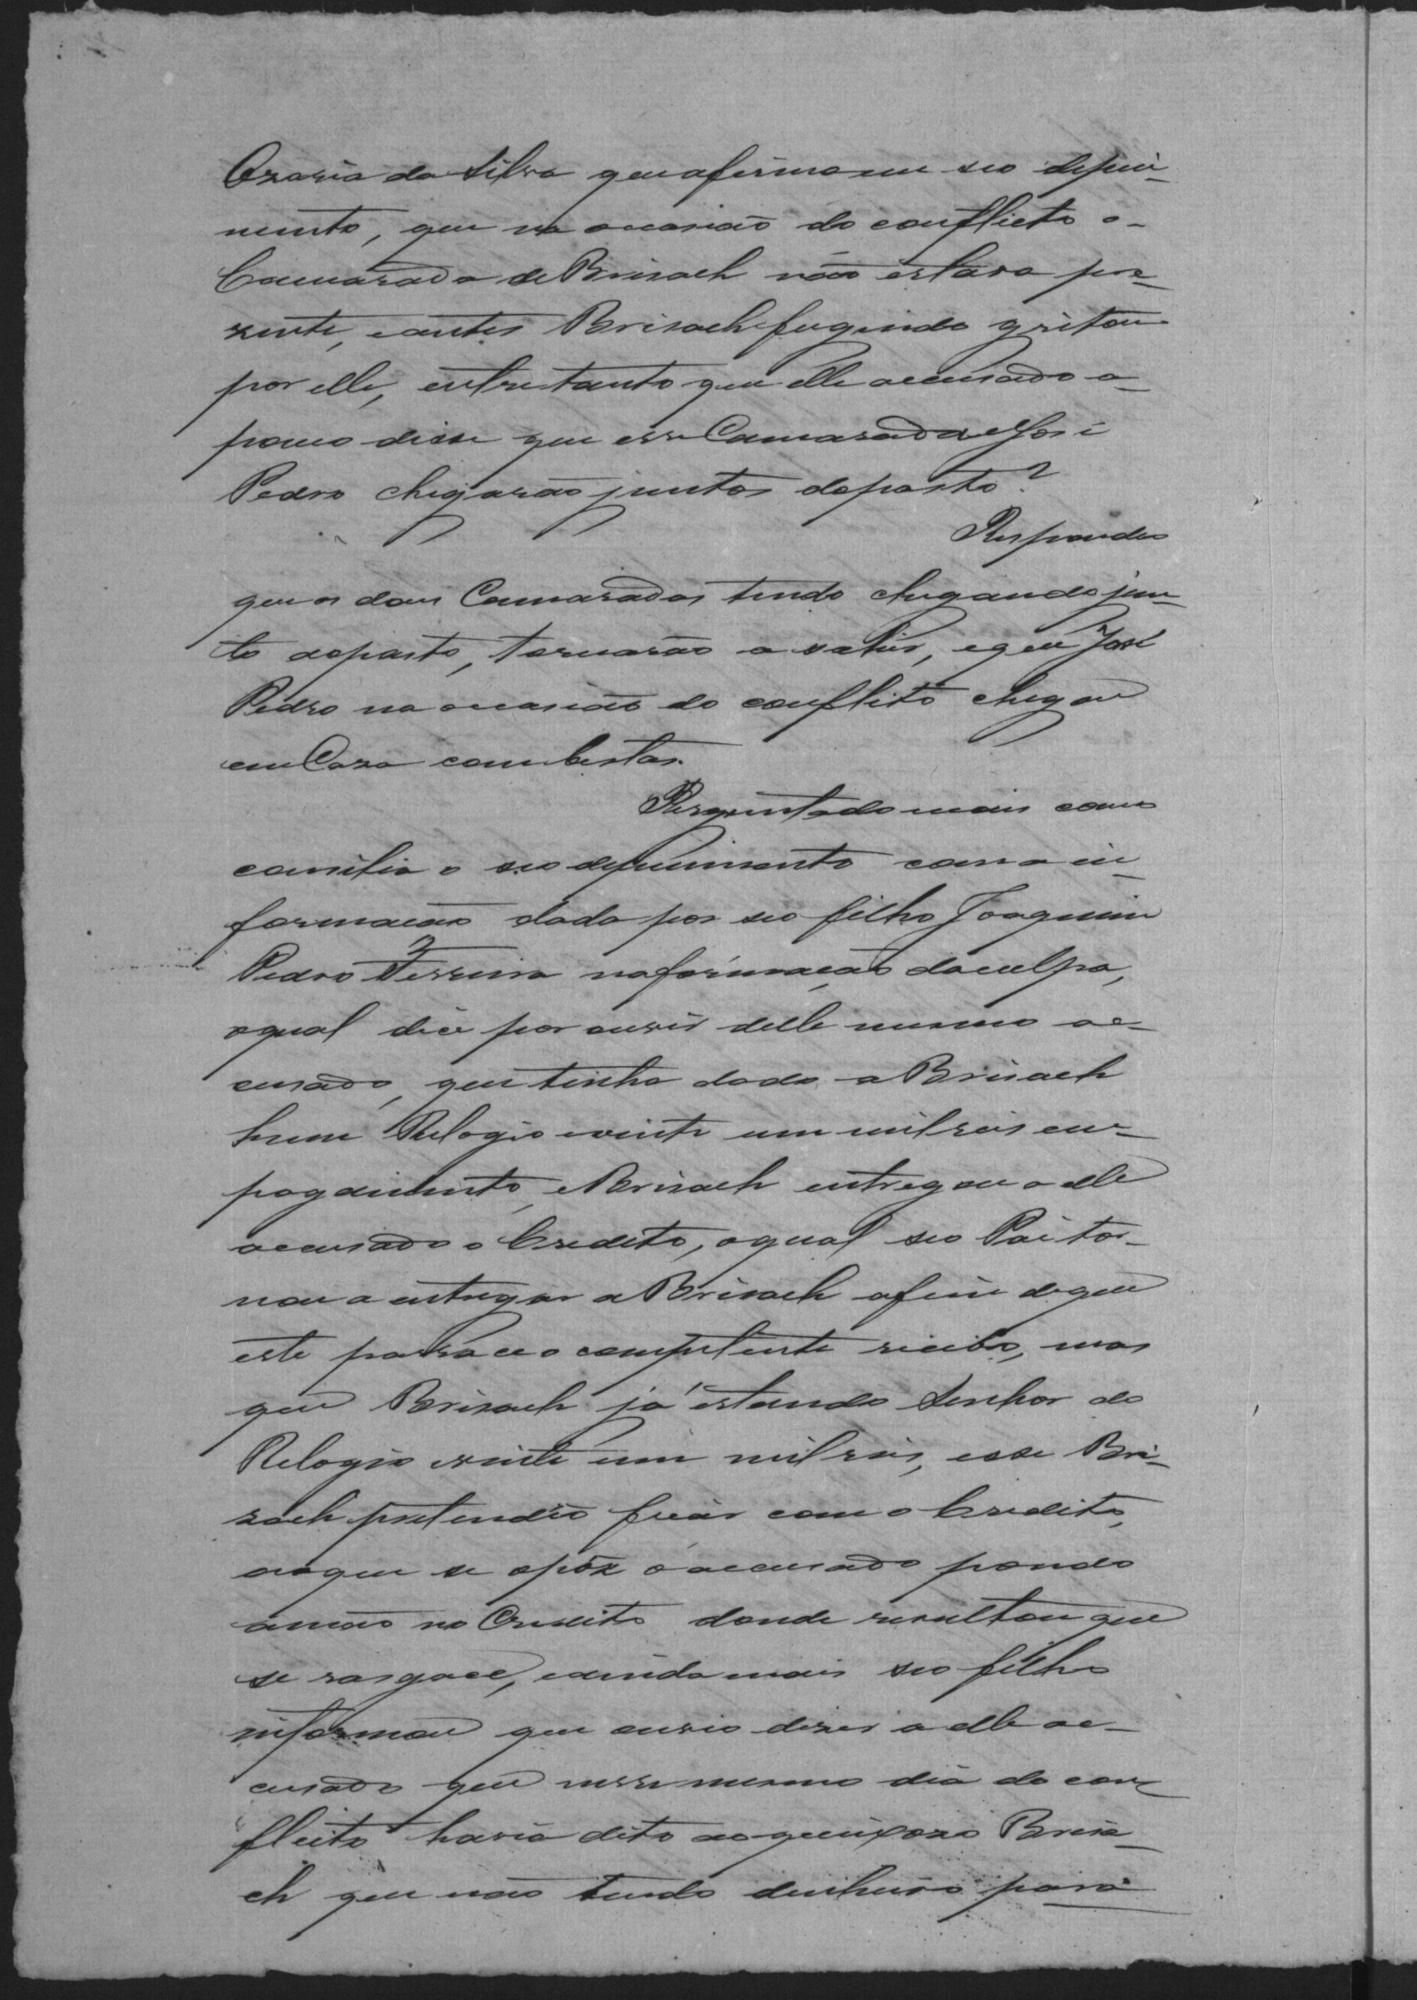 Cezaria da Silva que afirma em seo depui-
mento, que na occasião do conflicto o
Camarada de Brisach não estava pre-
zente, e antes Brisach fugindo gritou
por elle, entretanto que elle accusado a-
pouco disse que esse Camarada e José
Pedro chegarão juntos do pasto?
Respondeo
que os dous Camaradas tendo chegando jun-
to do pasto, tornarão a sahir, e que José
Pedro na occasião do conflito chegou
em Caza com bestas.
Perguntado mais como
concilia o seo depuimento com a in-
formação dada por seo filho Joaquim
Pedro Ferreira na formação da culpa,
o qual dice por ouvir delle mesmo ac-
cusado, que tinha dado a Brisach
hum Relogio e vinte um mil reis em
pagamento, e Brisach entregou a elle
accusado o Credito, o qual seo Pai tor-
nou a entregar a Brisach afim de que
este passace o competente recibo, mas
que Brisach já estando Senhor do
Relogio e vinte um mil reis, esse Bri-
sach pretendeo ficar com o Credito,
ao que se opôz o accusado pondo
a mão no Credito donde resultou que
se rasgace, e ainda mais seo filho
informou que ouvio dizer a elle ac-
cusado que nesse mesmo dia do con-
flicto havia dito ao queixozo Brisa-
ch que não tendo dinheiro para